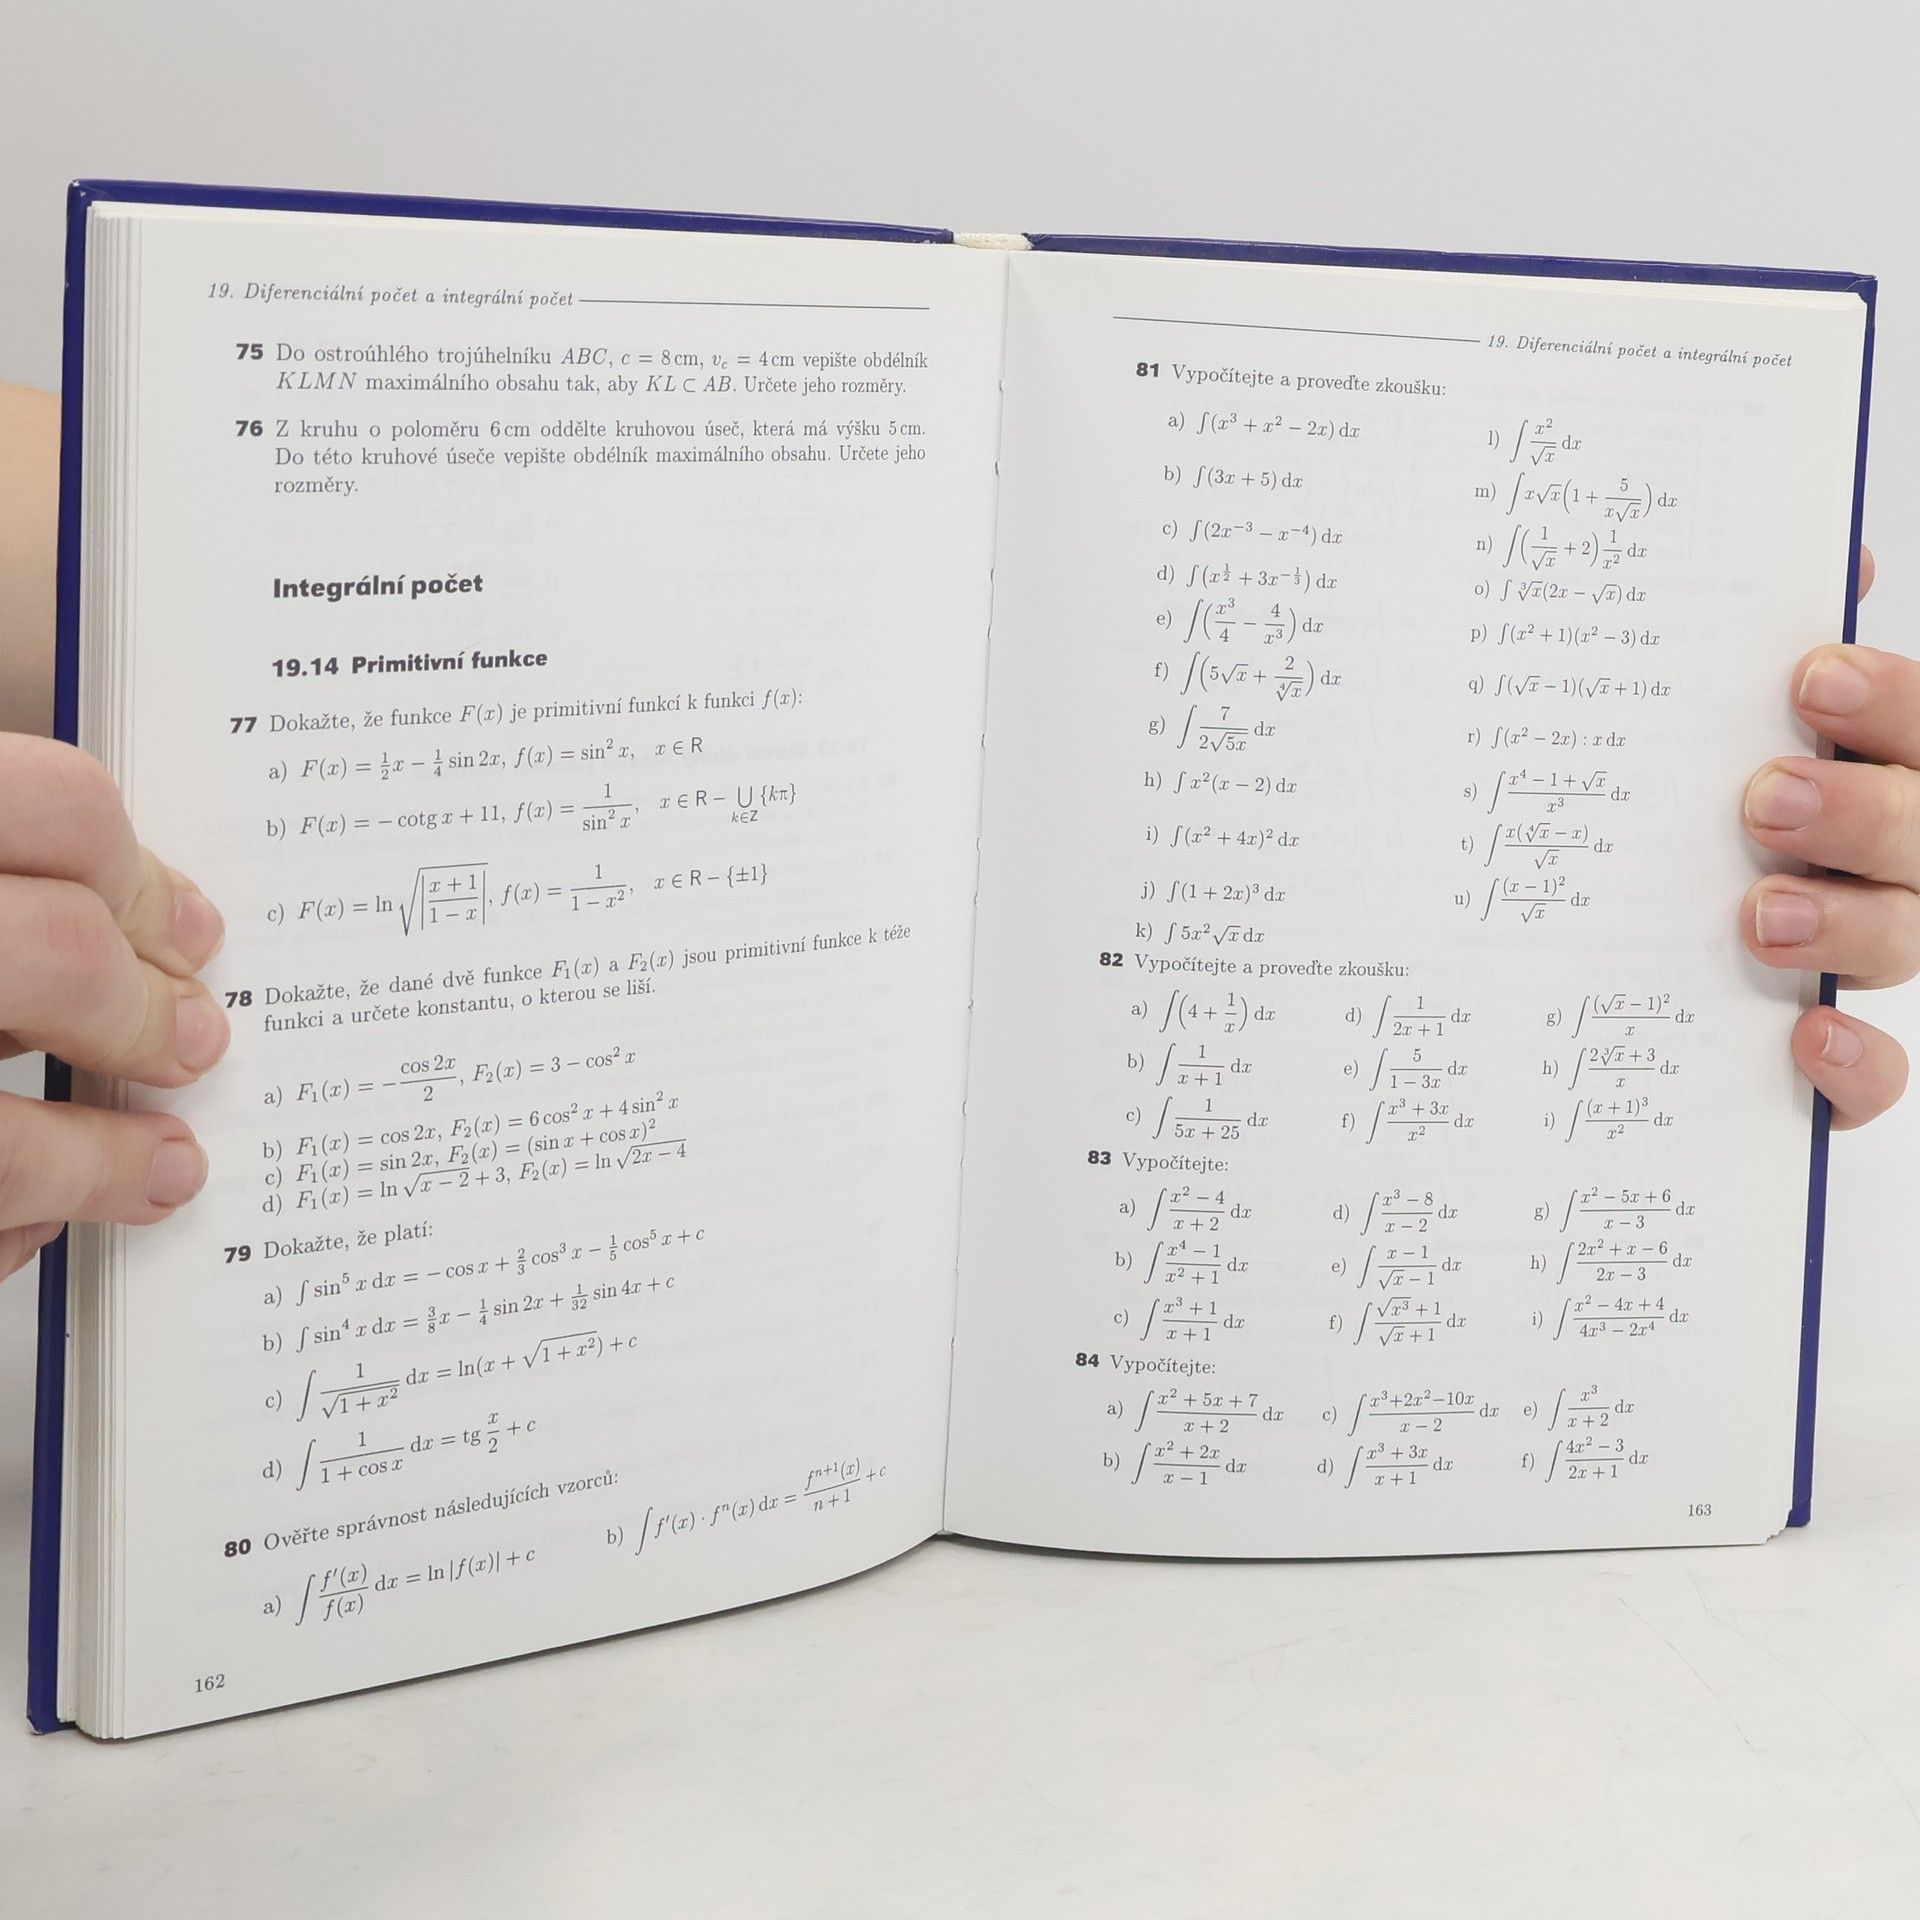 19. Diferenciální počet a integrální počet
75 Do ostroúhlého trojúhelníku ABC, c = 8 cm, v_c = 4 cm vepište obdélník
KLMN maximálního obsahu tak, aby KL ⊂ AB. Určete jeho rozměry.
76 Z kruhu o poloměru 6 cm oddělte kruhovou úseč, která má výšku 5 cm.
Do této kruhové úseče vepište obdélník maximálního obsahu. Určete jeho
rozměry.
Integrální počet
19.14 Primitivní funkce
77 Dokažte, že funkce F(x) je primitivní funkcí k funkci f(x):
a) F(x) = 1/2 x − 1/4 sin 2x, f(x) = sin² x, x ∈ R
b) F(x) = − cotg x + 11, f(x) = 1/(sin² x), x ∈ R − ⋃_{k∈Z} {kπ}
c) F(x) = ln √|(x + 1)/(1 − x)|, f(x) = 1/(1 − x²), x ∈ R − {±1}
78 Dokažte, že dané dvě funkce F₁(x) a F₂(x) jsou primitivní funkce k téže
funkci a určete konstantu, o kterou se liší.
a) F₁(x) = −(cos 2x)/2, F₂(x) = 3 − cos² x
b) F₁(x) = cos 2x, F₂(x) = 6 cos² x + 4 sin² x
c) F₁(x) = sin 2x, F₂(x) = (sin x + cos x)²
d) F₁(x) = ln √(x − 2) + 3, F₂(x) = ln √(2x − 4)
79 Dokažte, že platí:
a) ∫ sin⁵ x dx = − cos x + 2/3 cos³ x − 1/5 cos⁵ x + c
b) ∫ sin⁴ x dx = 3/8 x − 1/4 sin 2x + 1/32 sin 4x + c
c) ∫ 1/√(1 + x²) dx = ln(x + √(1 + x²)) + c
d) ∫ 1/(1 + cos x) dx = tg x/2 + c
80 Ověřte správnost následujících vzorců:
a) ∫ f′(x)/f(x) dx = ln |f(x)| + c
b) ∫ f′(x) · fⁿ(x) dx = fⁿ⁺¹(x)/(n + 1) + c
162
19. Diferenciální počet a integrální počet
81 Vypočítejte a proveďte zkoušku:
a) ∫(x³ + x² − 2x) dx
b) ∫(3x + 5) dx
c) ∫(2x⁻³ − x⁻⁴) dx
d) ∫(x^(1/2) + 3x^(−1/3)) dx
e) ∫(x³/4 − 4/x³) dx
f) ∫(5√x + 2/⁴√x) dx
g) ∫ 7/(2√(5x)) dx
h) ∫ x²(x − 2) dx
i) ∫(x² + 4x)² dx
j) ∫(1 + 2x)³ dx
k) ∫ 5x²√x dx
l) ∫ x²/√x dx
m) ∫ x√x(1 + 5/(x√x)) dx
n) ∫(1/√x + 2) 1/x² dx
o) ∫ ³√x(2x − √x) dx
p) ∫(x² + 1)(x² − 3) dx
q) ∫(√x − 1)(√x + 1) dx
r) ∫(x² − 2x) : x dx
s) ∫ (x⁴ − 1 + √x)/x³ dx
t) ∫ x(⁴√x − x)/√x dx
u) ∫ (x − 1)²/√x dx
82 Vypočítejte a proveďte zkoušku:
a) ∫(4 + 1/x) dx d) ∫ 1/(2x + 1) dx g) ∫ (√x − 1)²/x dx
b) ∫ 1/(x + 1) dx e) ∫ 5/(1 − 3x) dx h) ∫ (2³√x + 3)/x dx
c) ∫ 1/(5x + 25) dx f) ∫ (x³ + 3x)/x² dx i) ∫ (x + 1)³/x² dx
83 Vypočítejte:
a) ∫ (x² − 4)/(x + 2) dx d) ∫ (x³ − 8)/(x − 2) dx g) ∫ (x² − 5x + 6)/(x − 3) dx
b) ∫ (x⁴ − 1)/(x² + 1) dx e) ∫ (x − 1)/(√x − 1) dx h) ∫ (2x² + x − 6)/(2x − 3) dx
c) ∫ (x³ + 1)/(x + 1) dx f) ∫ (√x³ + 1)/(√x + 1) dx i) ∫ (x² − 4x + 4)/(4x³ − 2x⁴) dx
84 Vypočítejte:
a) ∫ (x² + 5x + 7)/(x + 2) dx c) ∫ (x³+2x²−10x)/(x − 2) dx e) ∫ x³/(x + 2) dx
b) ∫ (x² + 2x)/(x − 1) dx d) ∫ (x³ + 3x)/(x + 1) dx f) ∫ (4x² − 3)/(2x + 1) dx
163